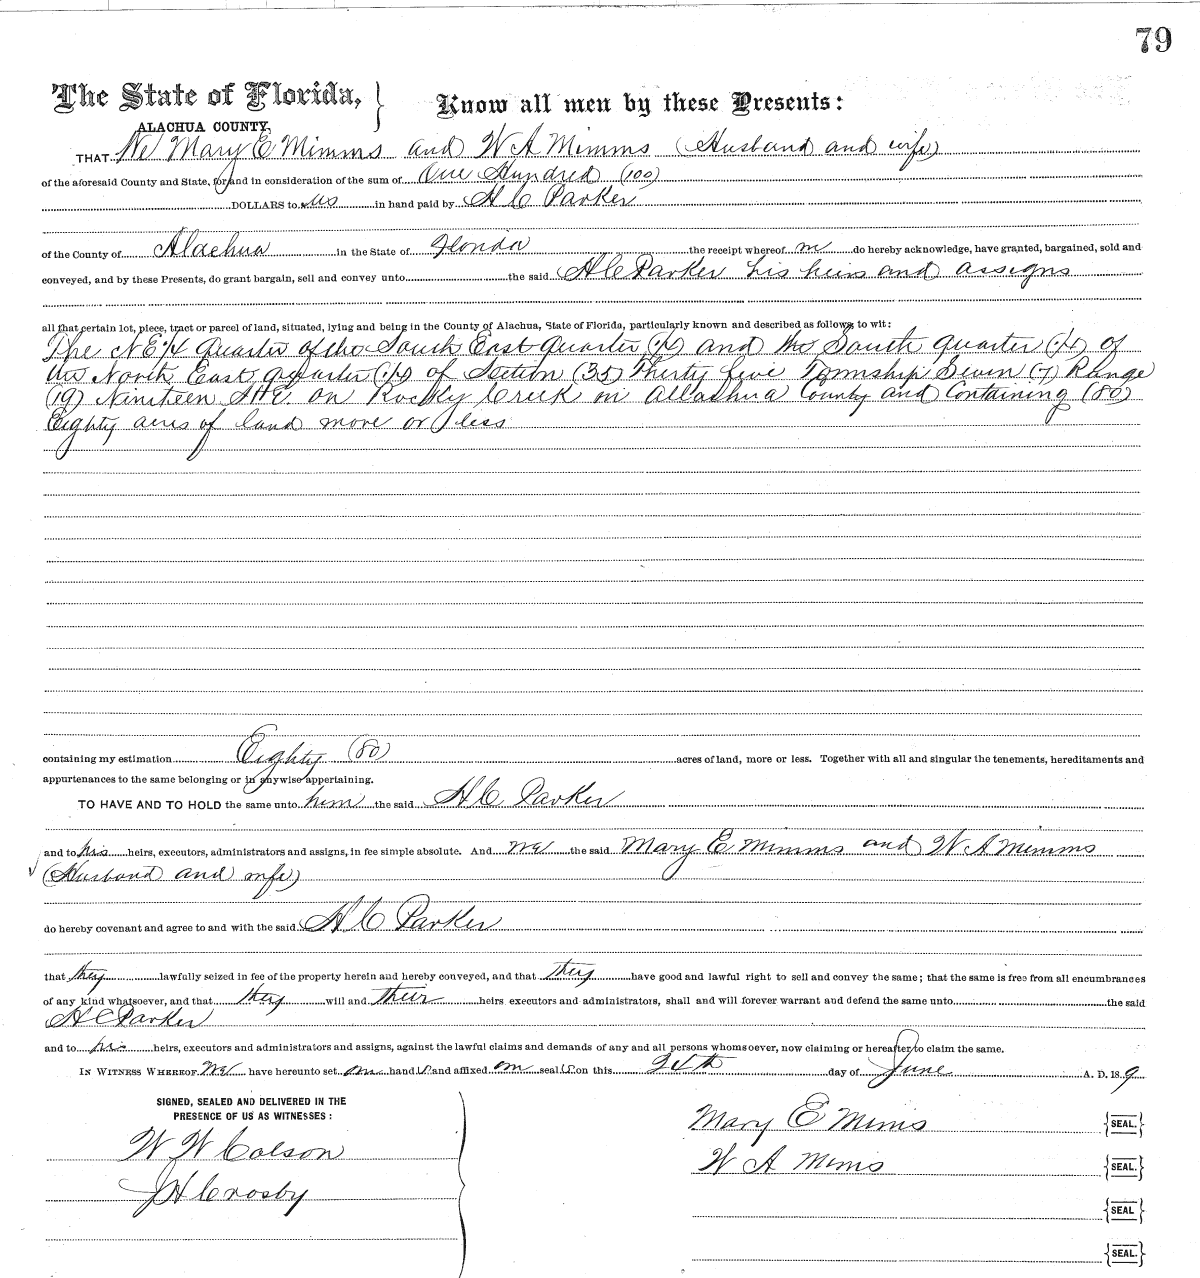 79
The State of Florida, } Know all men by these Presents:
ALACHUA COUNTY,
THAT We Mary E Mimms and W A Mimms (Husband and wife)
of the aforesaid County and State, for and in consideration of the sum of One Hundred (100)
DOLLARS to us in hand paid by H C Parker
of the County of Alachua in the State of Florida the receipt whereof do hereby acknowledge, have granted, bargained, sold and
conveyed, and by these Presents, do grant bargain, sell and convey unto the said H C Parker his heirs and assigns
all that certain lot, piece, tract or parcel of land, situated, lying and being in the County of Alachua, State of Florida, particularly known and described as follows to wit:
The NE 1/4 Quarter of the South East Quarter (1/4) and the South quarter (1/4) of
the North East quarter (1/4) of Section (35) Thirty five Township Seven (7) Range
(19) Nineteen on Rocky Creek in Allachua County and Containing (80)
Eighty acres of land more or less
containing my estimation Eighty (80) acres of land, more or less. Together with all and singular the tenements, hereditaments and
appurtenances to the same belonging or in anywise appertaining.
TO HAVE AND TO HOLD the same unto him the said H C Parker
and to his heirs, executors, administrators and assigns, in fee simple absolute. And we the said Mary E Mimms and W A Mimms
(Husband and wife)
do hereby covenant and agree to and with the said H C Parker
that they lawfully seized in fee of the property herein and hereby conveyed, and that they have good and lawful right to sell and convey the same; that the same is free from all encumbrances
of any kind whatsoever, and that they will and their heirs executors and administrators, shall and will forever warrant and defend the same unto the said
H C Parker
and to his heirs, executors and administrators and assigns, against the lawful claims and demands of any and all persons whomsoever, now claiming or hereafter to claim the same.
IN WITNESS WHEREOF We have hereunto set our hands and affixed our seals on this 24th day of June A. D. 189
SIGNED, SEALED AND DELIVERED IN THE
PRESENCE OF US AS WITNESSES:
W W Colson
J H Crosby
Mary E Mims {SEAL.}
W A Mims {SEAL.}
{SEAL}
{SEAL.}